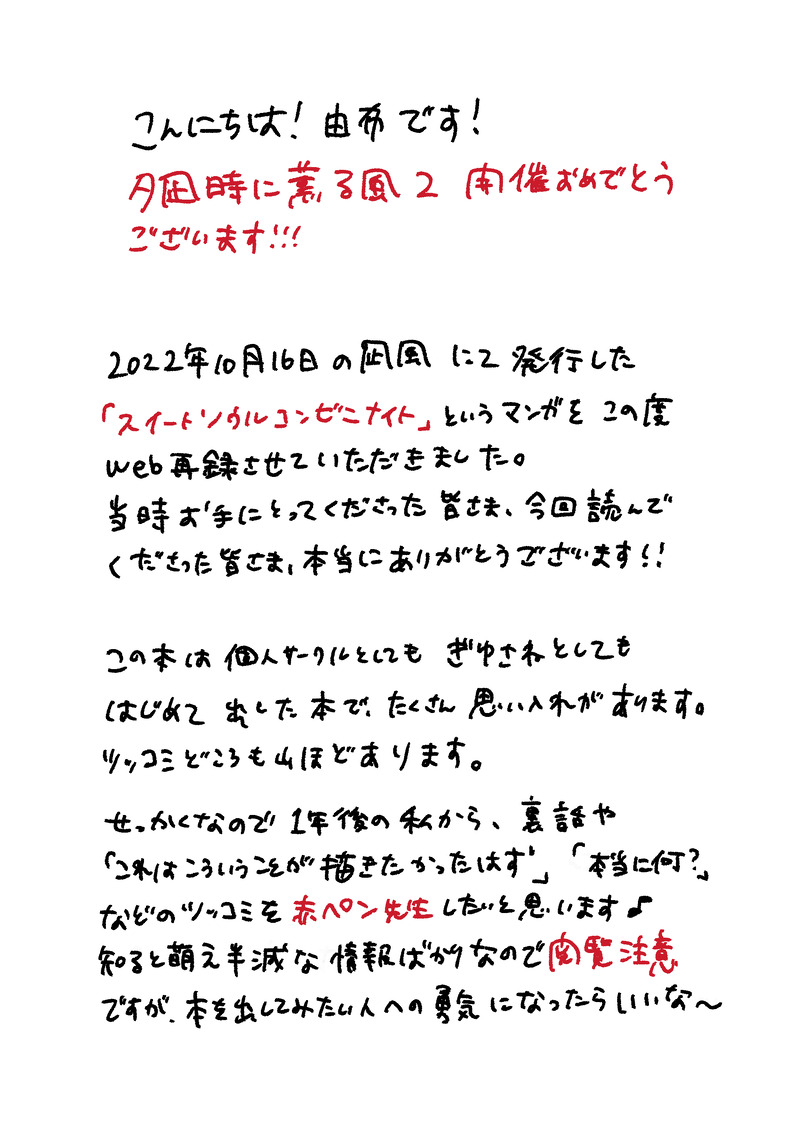 こんにちは! 由布です!
夕凪時に薫る風2 開催おめでとう
ございます!!!
2022年10月16日の凪風 にて 発行した
「スイートソウルコンビニナイト」というマンガを この度
web再録させていただきました。
当時お手にとってくださった 皆さま、今回読んで
くださった皆さま、本当にありがとうございます!!
この本は 個人サークルとしても ぎゆさねとしても
はじめて 出した 本で、たくさん 思い入れが あります。
ツッコミどころも山ほどあります。
せっかくなので 1年後の 私から、裏話や
「これは こういうことが 描きたかったはず」「本当に何?」
などのツッコミを 赤ペン先生 したいと思います♪
知ると萌え半減な 情報ばかりなので閲覧注意
ですが、本を出してみたい人への 勇気になったらいいな〜